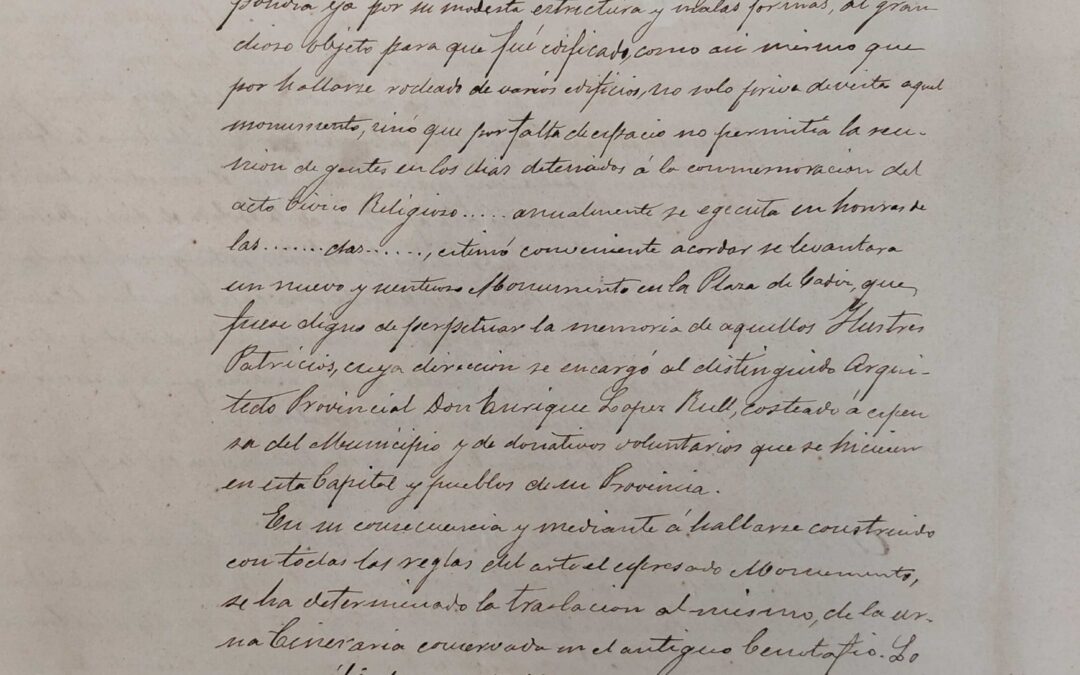 pondía ya por su modesta estructura y malas formas, al gran-
dioso objeto para que fué edificado, como asi mismo que
por hallarse rodeado de varios edificios, no solo priva de vista aquel
monumento, sinó que por falta de espacio no permitia la reu-
nion de gentes en los dias detenados á la conmemoracion del
acto Civico Religioso..... anualmente se egecuta en honras de
las....... das......, estimó conveniente acordar se levantara
un nuevo y suntuoso Monumento en la Plaza de Cadiz, que
fuese digno de perpetuar la memoria de aquellos Ilustres
Patricios, cuya direccion se encargó al distinguido Arqui-
tecto Provincial Don Enrique Lopez Rull, costeado á espen
sa del Municipio y de donativos voluntarios que se hicieron
en esta Capital y pueblos de su Provincia.
En su consecuencia y mediante á hallarse construido
con todas las reglas del arte el espresado Monumento,
se ha determinado la traslacion al mismo, de la ur-
na Cineraria conservada en el antiguo Cenotafio. Lo